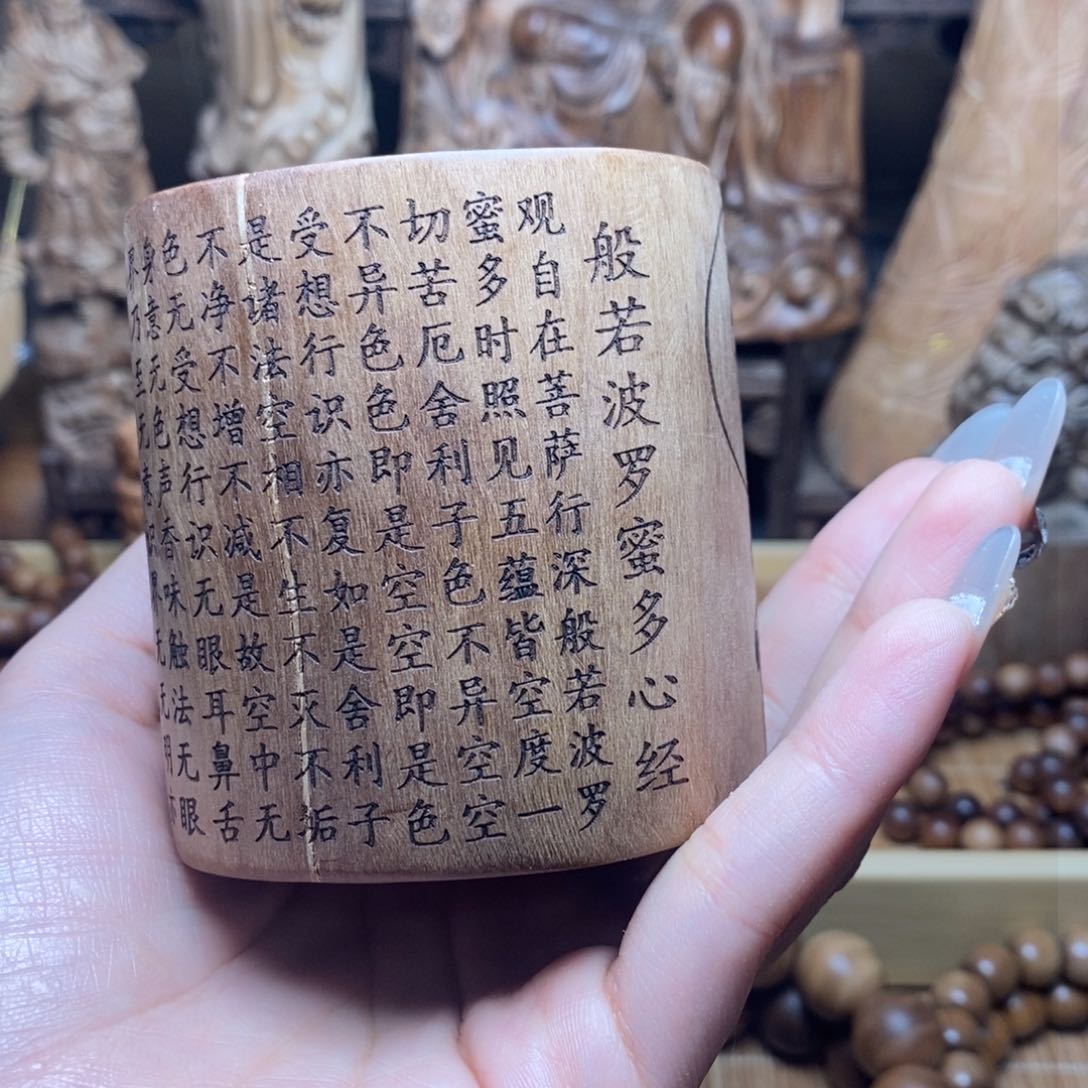 般若波罗蜜多心经
观自在菩萨行深般若波罗
蜜多时照见五蕴皆空度一
切苦厄舍利子色不异空空
不异色色即是空空即是色
受想行识亦复如是舍利子
是诸法空相不生不灭不垢
不净不增不减是故空中无
色无受想行识无眼耳鼻舌
身意无色声香味触法无眼
界乃至无意识界无无明亦